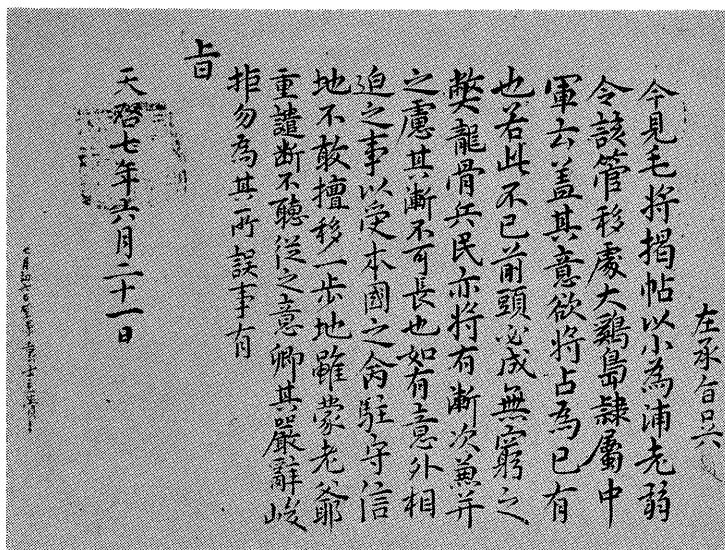 左承旨
今見毛將揭帖以小為浦老弱
令該管移處大雞島隷屬中
軍云盖其意欲將占為己有
也若此不已前頭必成無窮之
獘龍骨兵民亦將有漸次兼并
之慮其漸不可長也如有意外相
迫之事以受本國之命駐守信
地不敢擅移一步地雖蒙老爺
重譴断不聽從之意卿其嚴辭峻
拒勿為其所誤事有
旨
天啓七年六月二十一日